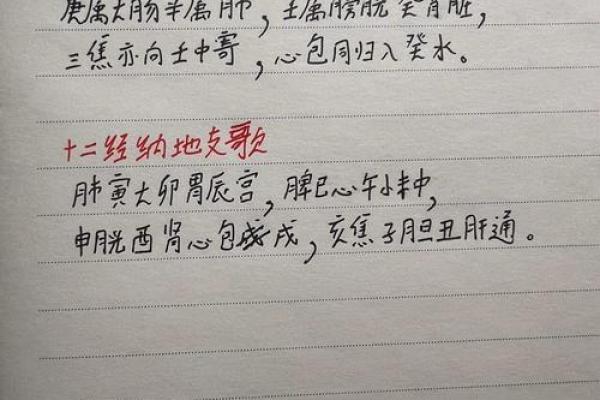 庚属大肠辛属肺，壬属膀胱癸肾脏，
三焦亦向壬中寄，心包同归入癸水。
十二经纳地支歌
肺寅大卯胃辰宫，脾巳心午小未中，
申胱酉肾心包戌，亥焦子胆丑肝通。